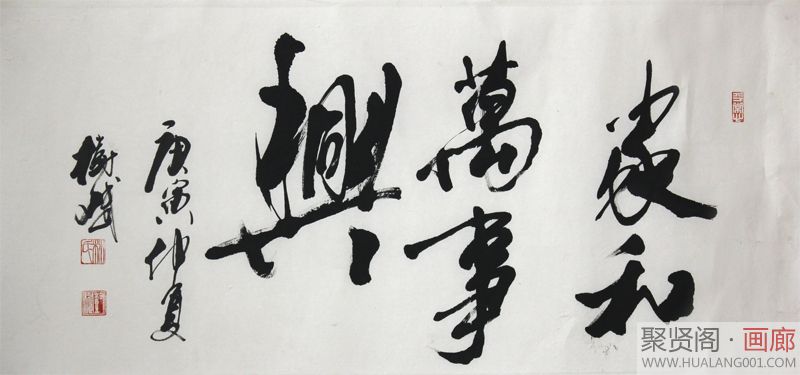 家和
萬事
興
庚寅仲夏
樹斌
聚贤阁·画廊
WWW.HUALANG001.COM